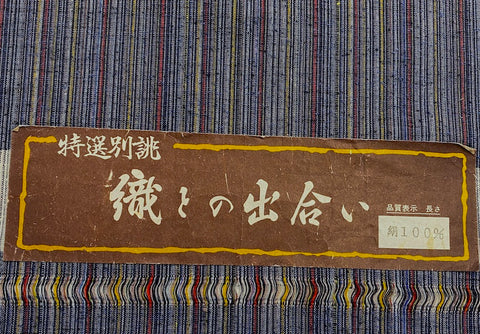 特選別誂
織との出合い
品質表示 長さ
絹100%